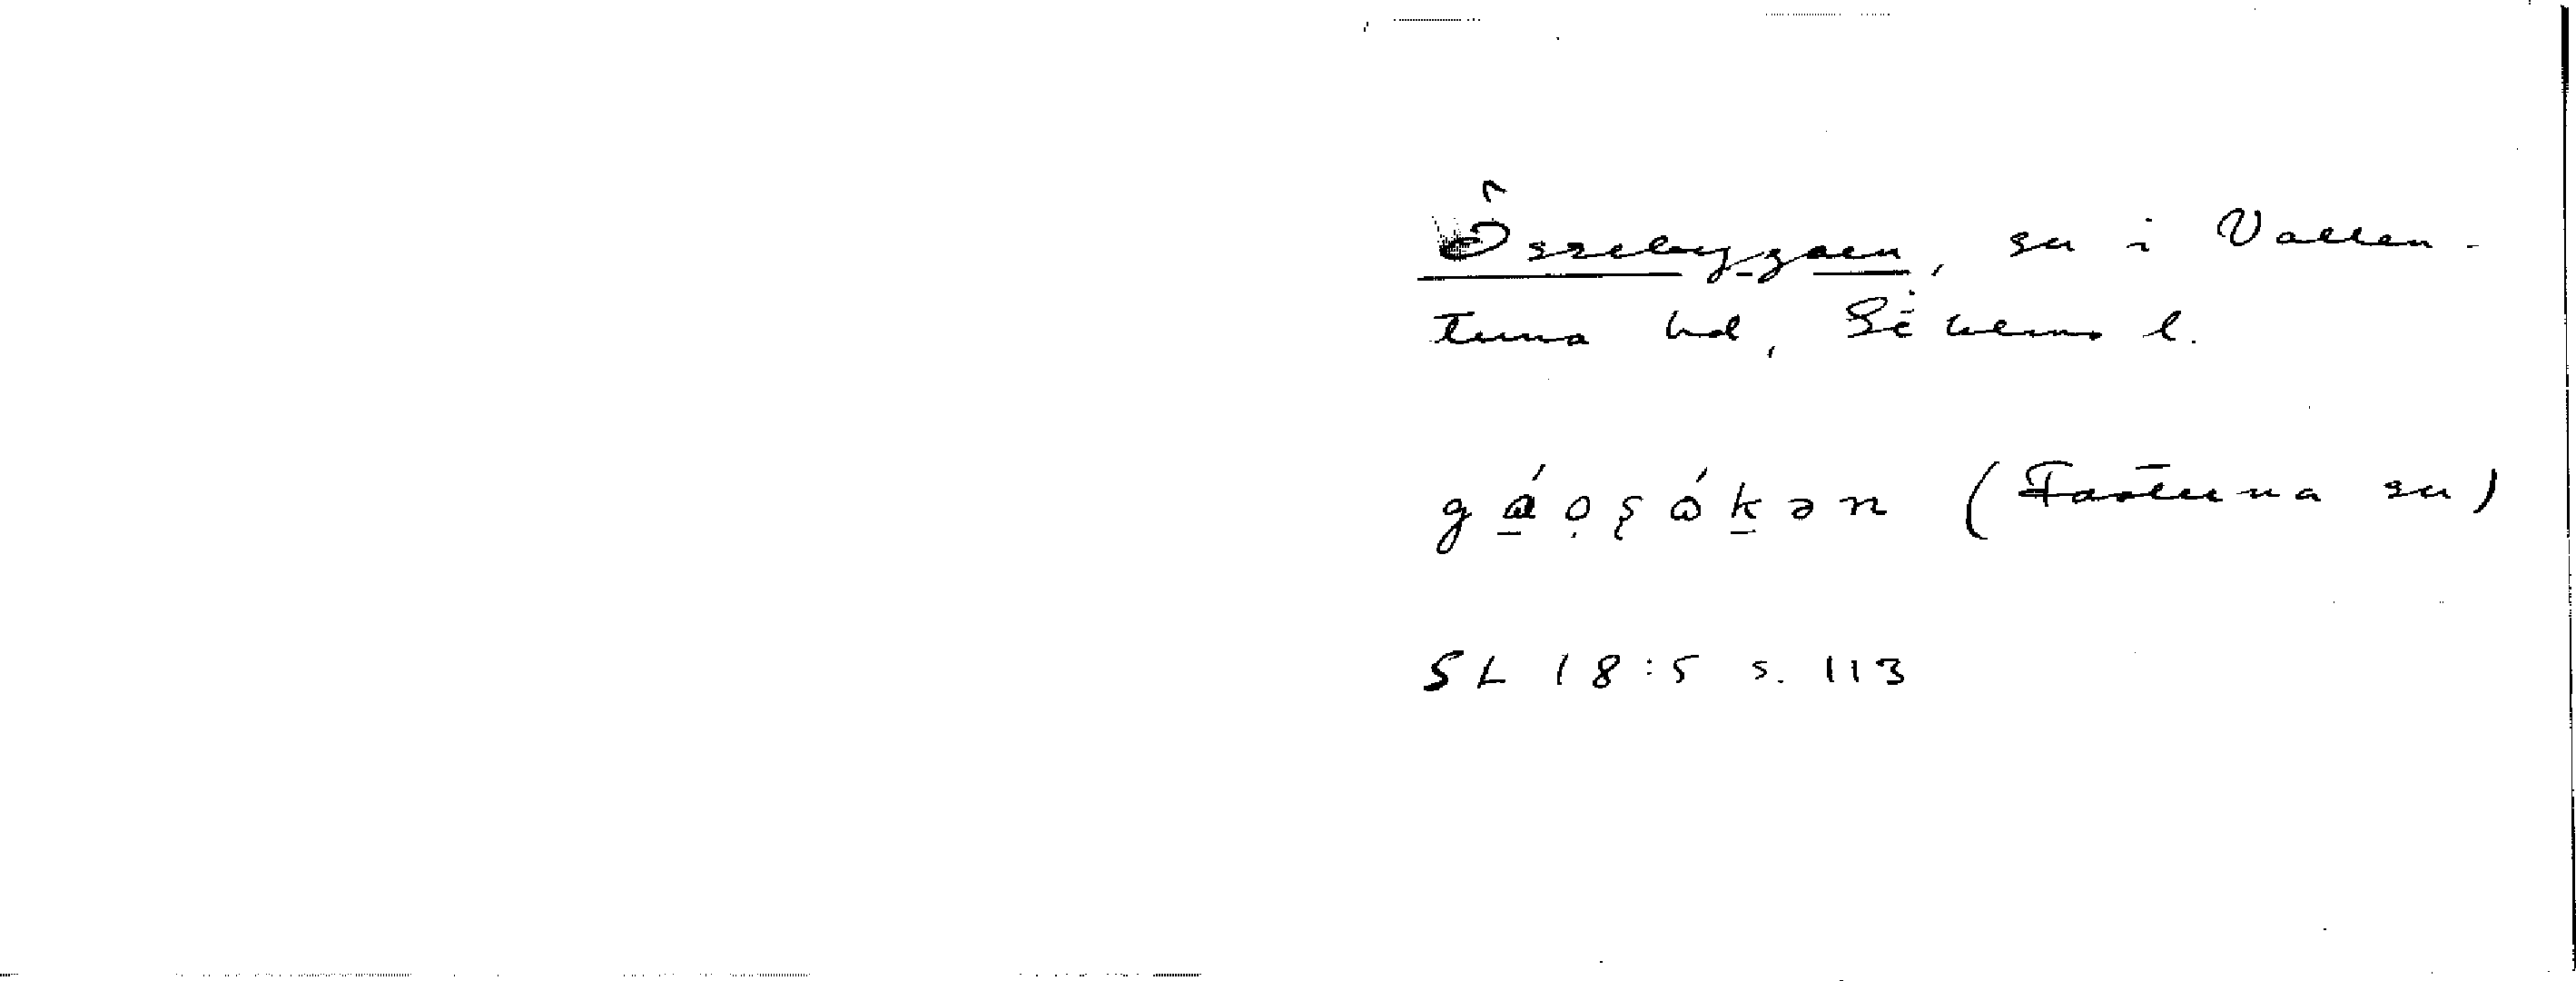 Össebygarn, sn i Vallen-
tuna hd, Sthlms l.
gá̱o̩şɷ́ḵən (Fasterna sn)
SL 18:5 s. 113